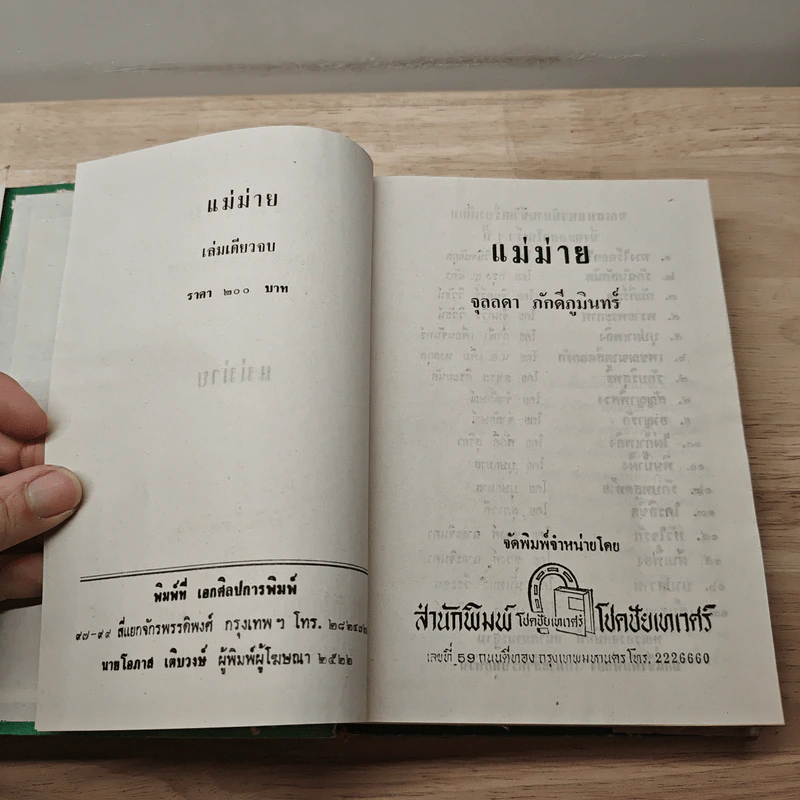 แม่ม่าย
เล่มเดียวจบ
ราคา ๒๐๐ บาท
พิมพ์ที่ เอกศิลปการพิมพ์
๙๗-๙๙ สี่แยกจักรพรรดิพงศ์ กรุงเทพฯ โทร.
นายโอภาส เติบวงษ์ ผู้พิมพ์ผู้โฆษณา ๒๕๒๒
แม่ม่าย
จุลลดา ภักดีภูมินทร์
จัดพิมพ์จำหน่ายโดย
สำนักพิมพ์ โชคชัยเทเวศร์ โชคชัยเทเวศร์
เลขที่ 59 ถนนตีทอง กรุงเทพมหานคร โทร. 2226660